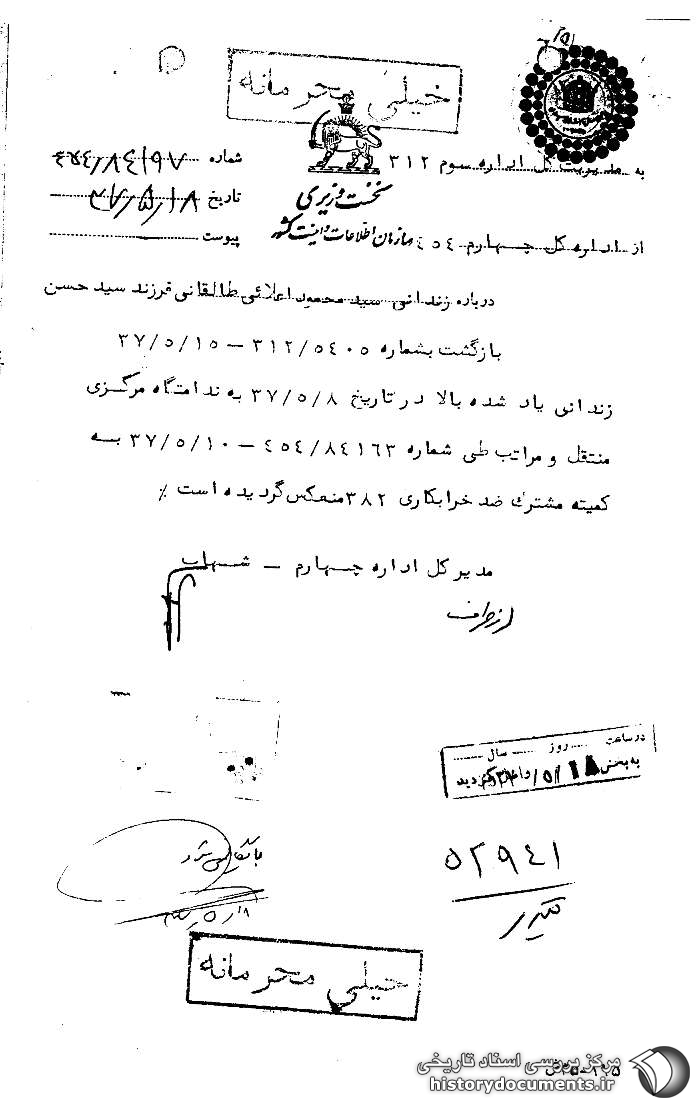 خیلی محرمانه
به مدیریت کل اداره سوم ۳۱۲
شماره ۴۵۴/۸۴۱۹۷
نخست وزیری
تاریخ ۳۷/۵/۱۸
سازمان اطلاعات و امنیت کشور
از اداره کل چهارم ۴۵۴
پیوست
درباره زندانی سید محمود اعلائی طالقانی فرزند سید حسن
بازگشت بشماره ۳۱۲/۵۴۰۵ – ۳۷/۵/۱۵
زندانی یاد شده بالا در تاریخ ۳۷/۵/۸ به ندامتگاه مرکزی
منتقل و مراتب طی شماره ۴۵۴/۸۴۱۶۳ – ۳۷/۵/۱۰ به
کمیته مشترک ضد خرابکاری ۳۸۲ منعکس گردیده است ٪
مدیر کل اداره چهارم – شهاب
از طرف
در ساعت ..... روز ..... سال .....
به بخش ۳۱۲ وارد گردید
بایگانی شود
۵۲۹۴۱
خیلی محرمانه
مرکز بررسی اسناد تاریخی
historydocuments.ir